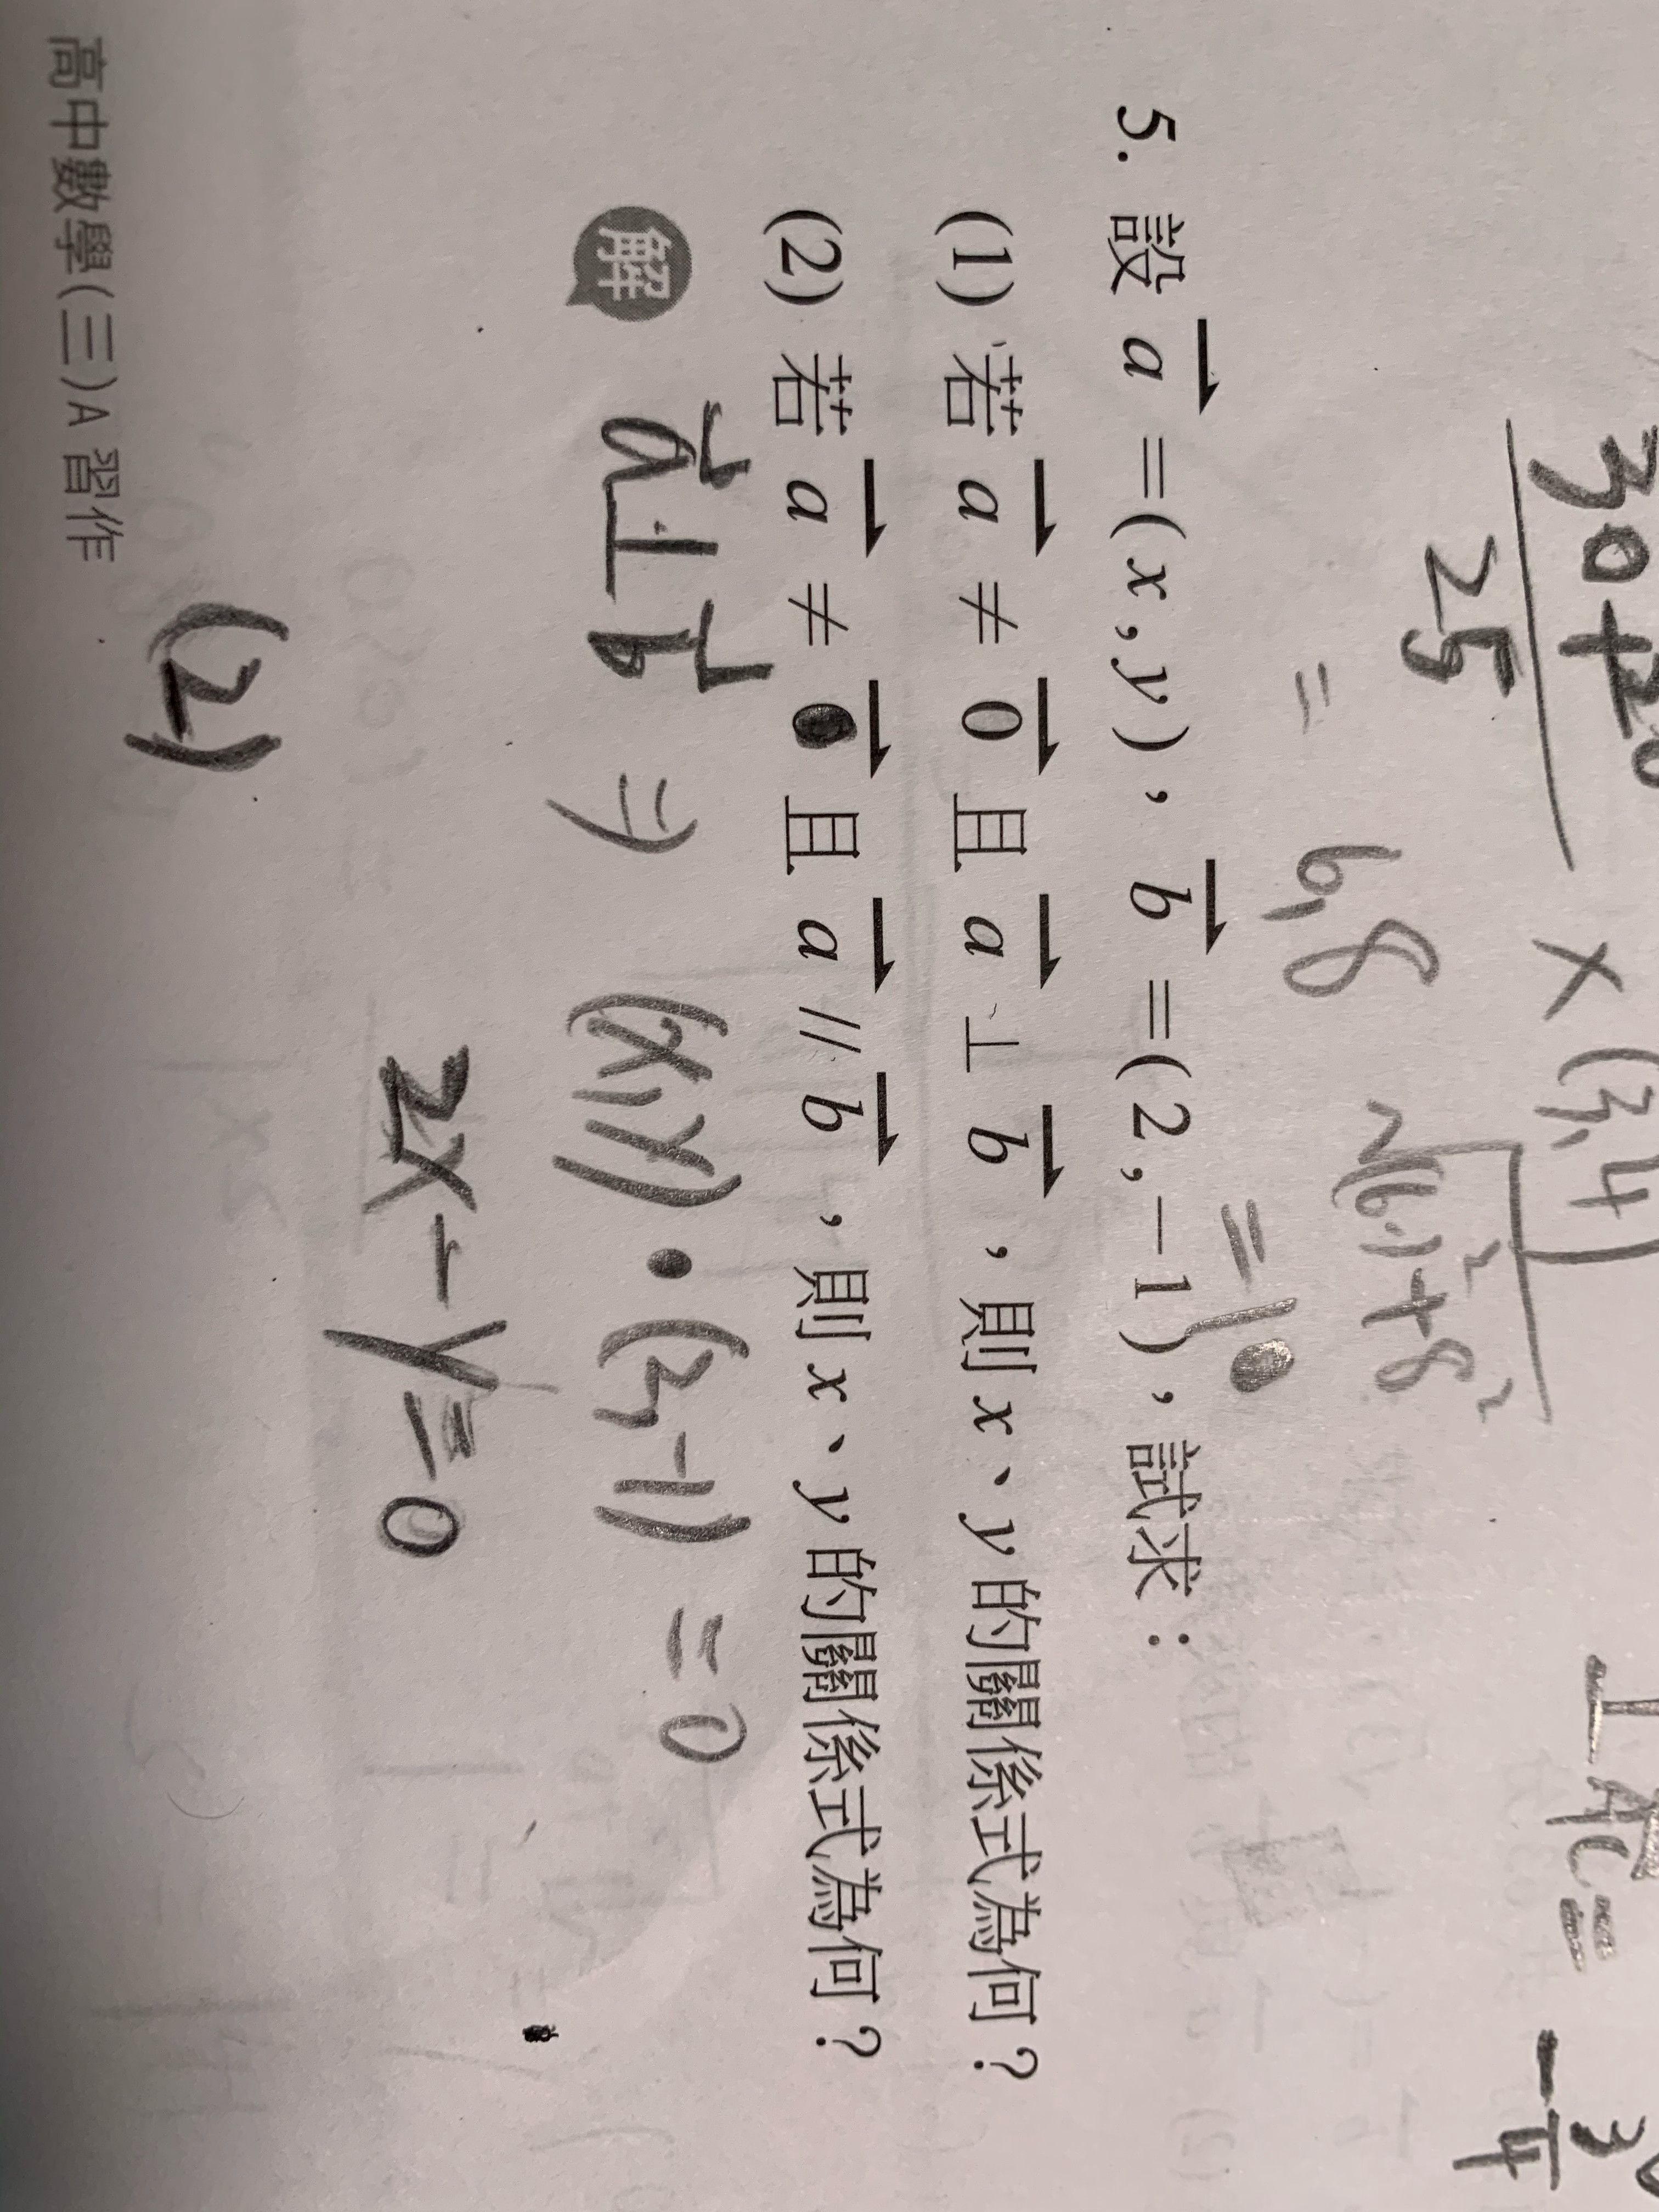 30+20
25
x (3,4)
= 6, 8
√(6)²+8²
=10
- 3
4
5. 設 a =(x,y),b =(2,-1),試求:
(1) 若 a ≠ 0 且 a ⊥ b ,則 x、y 的關係式為何?
(2) 若 a ≠ 0 且 a // b ,則 x、y 的關係式為何?
解 a ⊥ b ⇒ (x,y)•(2,-1) = 0
2x-y=0
(2)
高中數學(三)A 習作